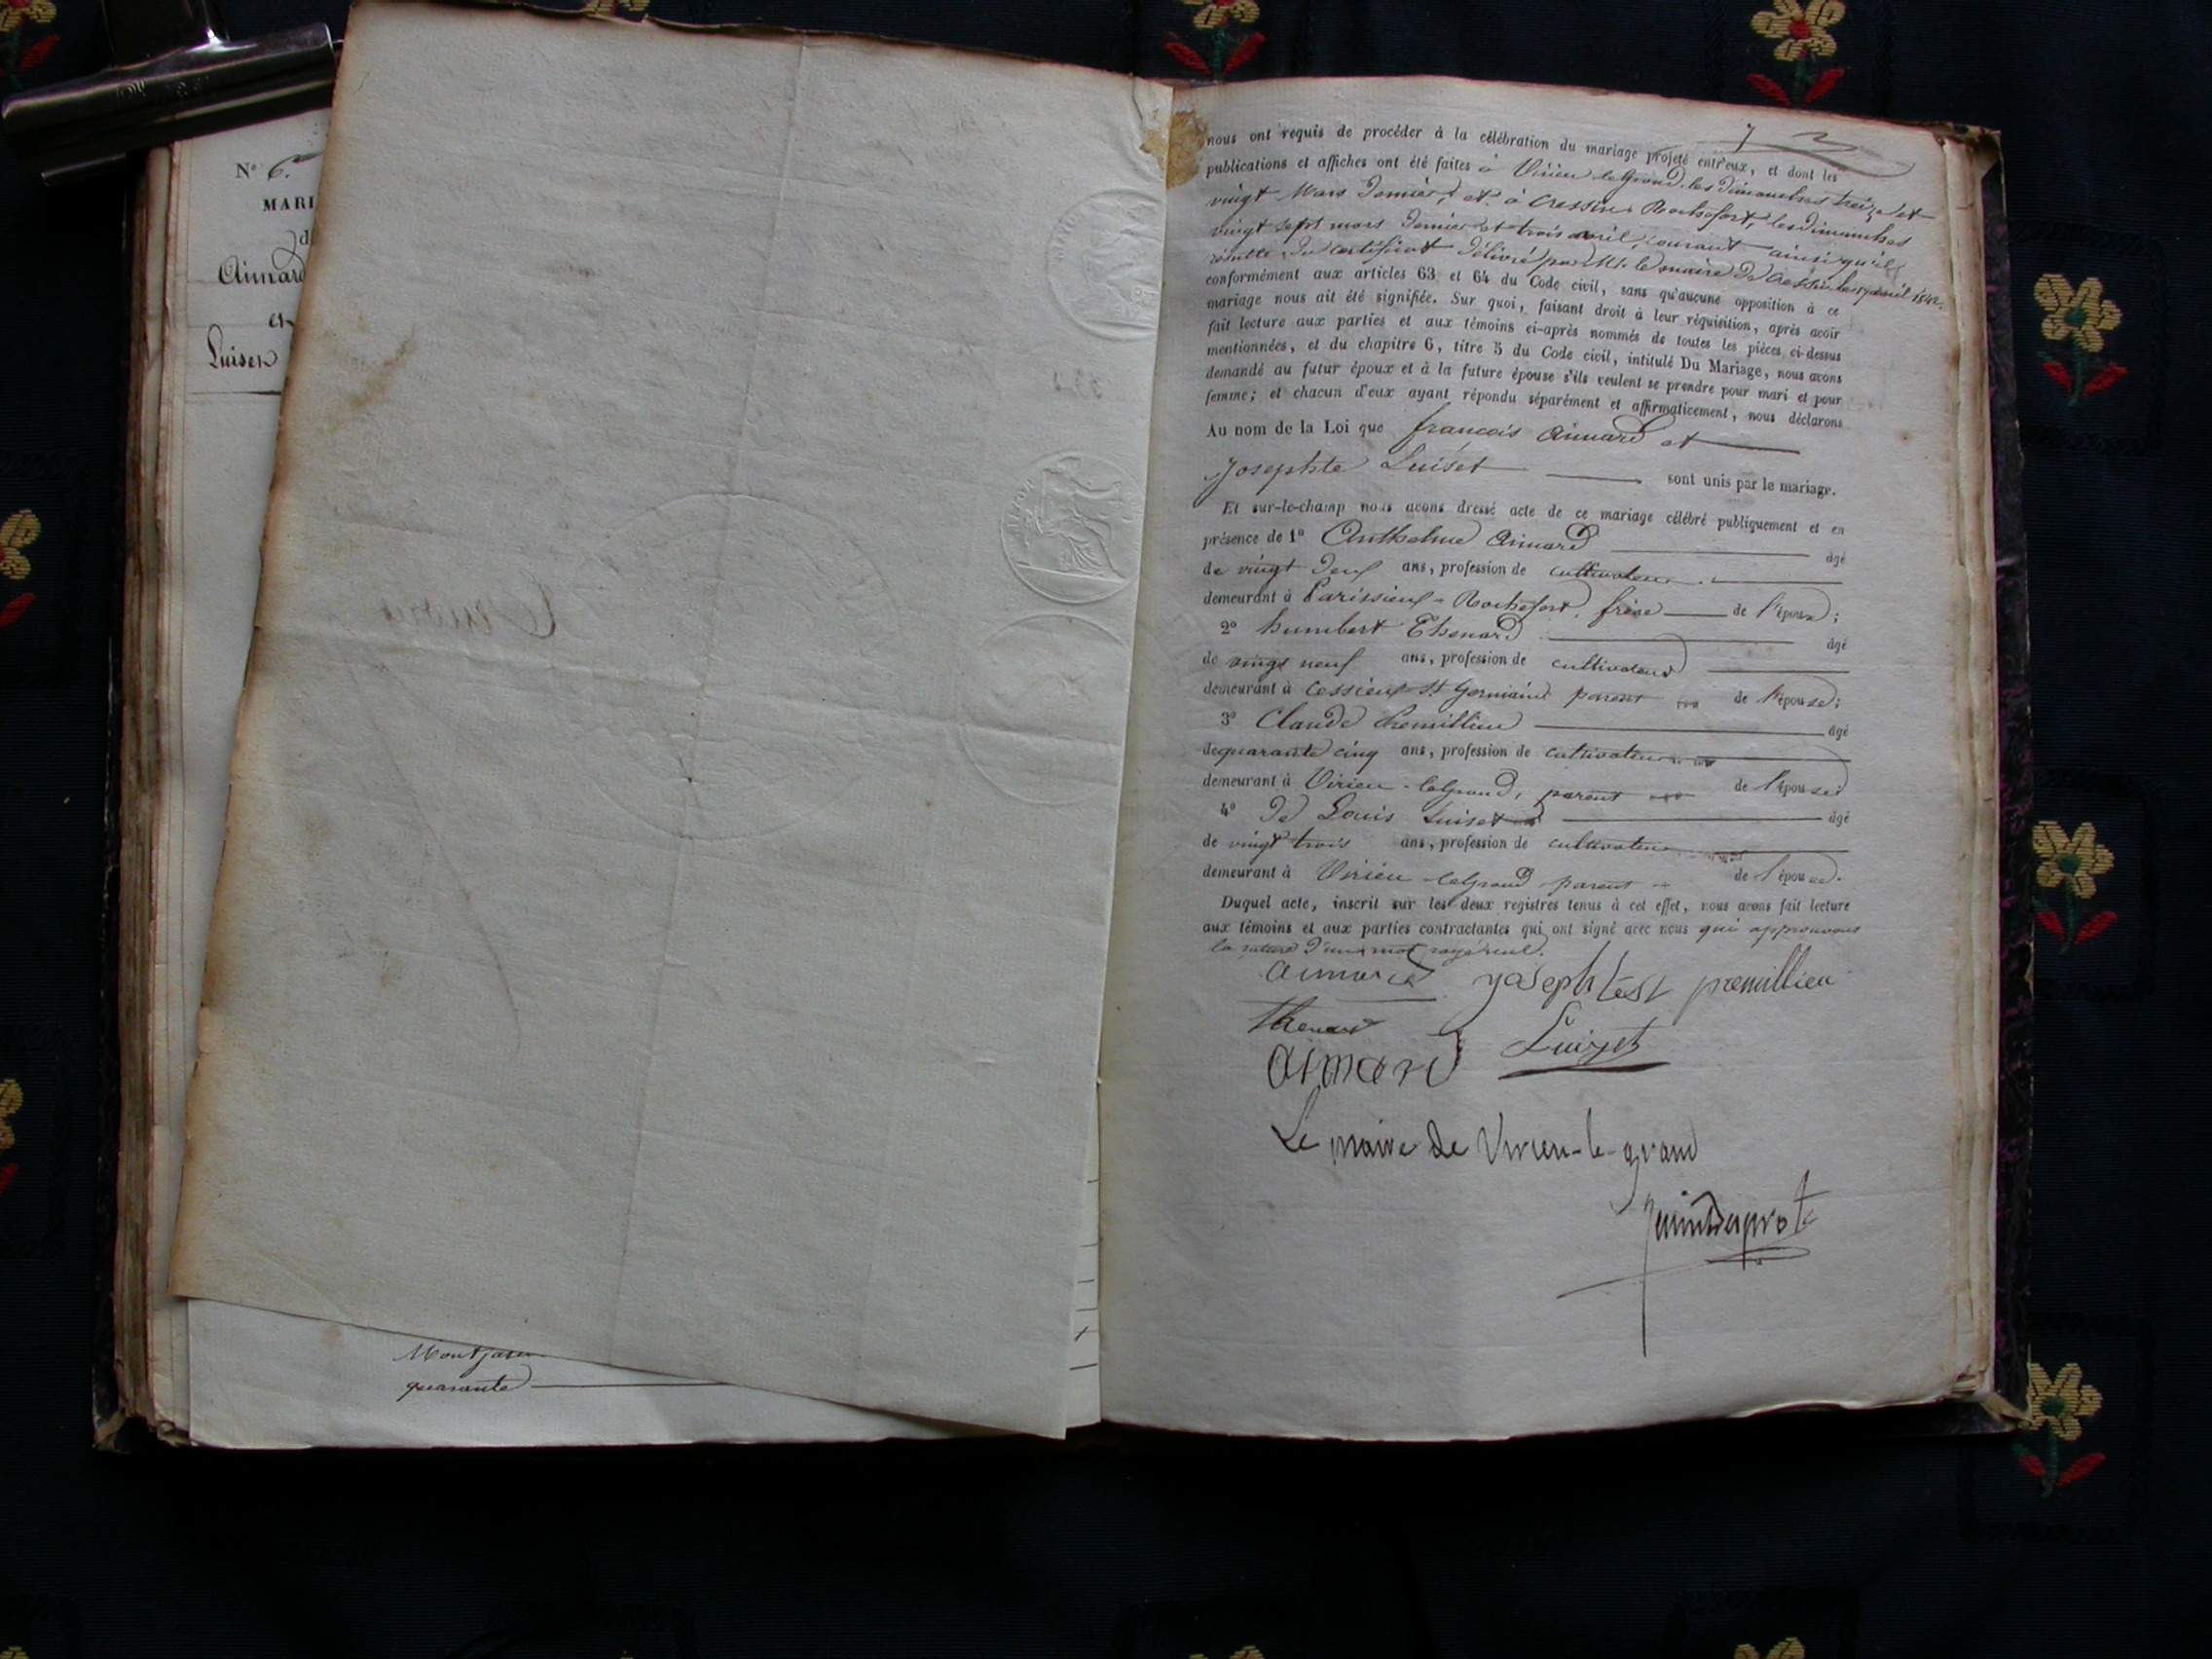 N° 6.
MARI
d
Aimard
et
Luiset
Montjara
quarante
7
nous ont requis de procéder à la célébration du mariage projeté entr'eux, et dont les
publications et affiches ont été faites à Virieu leGrand, les dimanches treize et
vingt Mars dernier, et à Cressin-Rochefort, les dimanches
vingt sept mars dernier et trois avril courant ainsi qu'il
résulte du certificat délivré par M. le maire de Cressin le avril
conformément aux articles 63 et 64 du Code civil, sans qu'aucune opposition à ce
mariage nous ait été signifiée. Sur quoi, faisant droit à leur réquisition, après avoir
fait lecture aux parties et aux témoins ci-après nommés de toutes les pièces ci-dessus
mentionnées, et du chapitre 6, titre 5 du Code civil, intitulé Du Mariage, nous avons
demandé au futur époux et à la future épouse s'ils veulent se prendre pour mari et pour
femme; et chacun d'eux ayant répondu séparément et affirmativement, nous déclarons
Au nom de la Loi que francois Aimard et
Josephte Luiset sont unis par le mariage.
Et sur-le-champ nous avons dressé acte de ce mariage célébré publiquement et en
présence de 1° Anthelme Aimard âgé
de vingt deux ans, profession de cultivateur
demeurant à Parissieux-Rochefort, frère de l'époux;
2° humbert Thenard âgé
de vingt neuf ans, profession de cultivateur
demeurant à Cessieux St Germain parent de l'épouse;
3° Claude Premillieu âgé
de quarante cinq ans, profession de cultivateur
demeurant à Virieu-leGrand, parent de l'épouse;
4° De Louis Luiset âgé
de vingt trois ans, profession de cultivateur
demeurant à Virieu-leGrand parent de l'épouse.
Duquel acte, inscrit sur les deux registres tenus à cet effet, nous avons fait lecture
aux témoins et aux parties contractantes qui ont signé avec nous qui approuvons
la rature d'un mot rayé nul.
aimard josephte premillieu
thenard
Luizet
aimard
Le maire de Virieu-le-grand